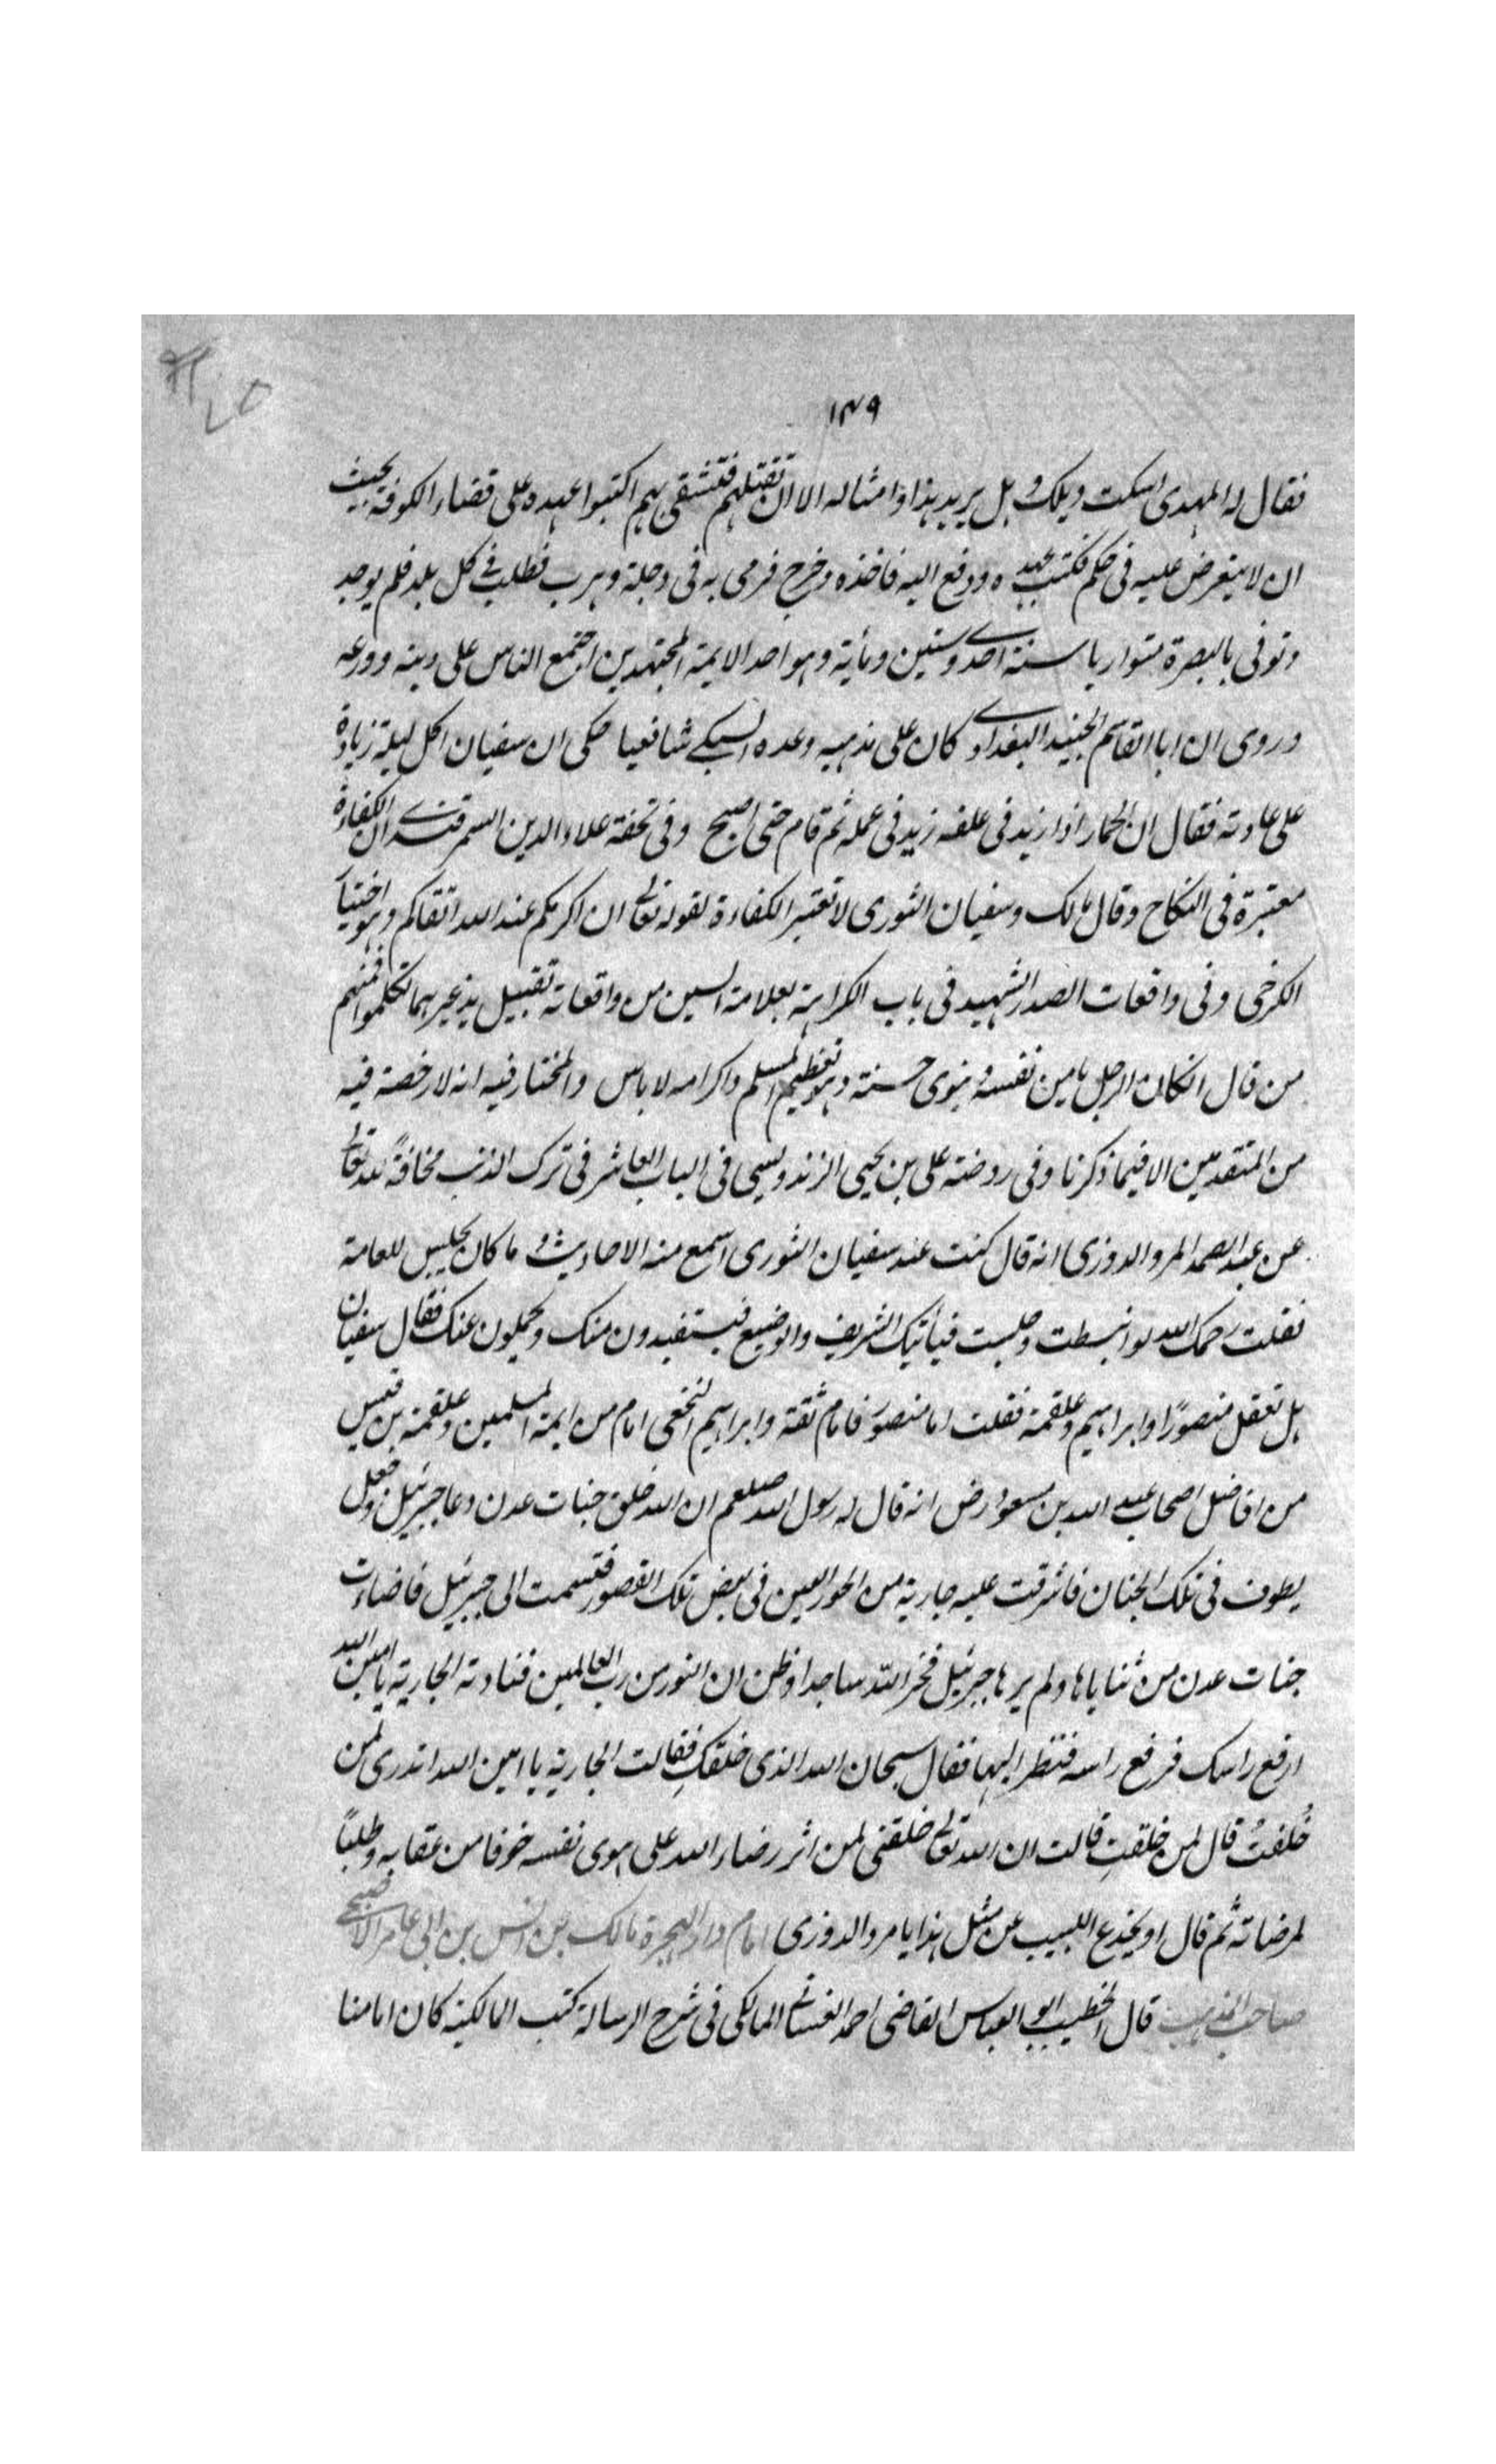 ١٣٩
فقال له المهدى اسكت ويلك وهل يريد هذا وامثاله الا ان تقتلهم فتشقى بهم اكتبوا عهده على قضاء الكوفة بحيث
ان لا يتعرض عليه فى حكم فكتب عهده ودفع اليه فاخذه وخرج فرمى به فى دجلة وهرب فطلب فى كل بلد فلم يوجد
وتوفى بالبصرة متواريا سنة احدى وستين ومأية وهو احد الايمة المجتهدين اجتمع الناس على دينه وورعه
وروى ان ابا القاسم الجنيد البغدادى كان على مذهبه وعده السبكى شافعيا حكى ان سفيان اكل ليلة زيادة
على عادته فقال ان الحمار اذا زيد فى علفه زيد فى عمله ثم قام حتى اصبح وفى تحفة علاء الدين السمرقندى ان الكفاءة
معتبرة فى النكاح وقال مالك وسفيان الثورى لا تعتبر الكفاءة لقوله تعالى ان اكرمكم عند الله اتقاكم وهو اختيار
الكرخى وفى واقعات الصدر الشهيد فى باب الكراهة بعلامة السين من واقعاته تقبيل يد غيرهما تكلموا فمنهم
من قال ان كان الرجل يامن نفسه وينوى حسنة وهو تعظيم المسلم واكرامه لا باس والمختار فيه انه لا رخصة فيه
من المتقدمين الا فيما ذكرنا وفى روضة على بن يحيى الزندويسى فى الباب العاشر فى ترك الذنب مخافةً لله تعالى
عن عبد الصمد المروالدوزى انه قال كنت عند سفيان الثورى اسمع منه الاحاديث وما كان يجلس للعامة
فقلت رحمك الله لو انبسطت وجلست فيأتيك الشريف والوضيع فيستفيدون منك ويحملون عنك فقال سفيان
هل تعقل منصورًا وابراهيم وعلقمة فقلت اما منصور فامام ثقة وابراهيم النخعى امام من ايمة المسلمين وعلقمة بن قيس
من افاضل اصحاب عبد الله بن مسعود رض انه قال له رسول الله صلعم ان الله خلق جنات عدن دعا جبرئيل فجعل
يطوف فى تلك الجنان فاشرقت عليه جارية من الحور العين فى بعض تلك القصور فتبسمت الى جبرئيل فاضاءت
جنات عدن من ثناياها ولم يرها جبرئيل فخر لله ساجدا وظن ان النور من رب العالمين فنادته الجارية يا امين الله
ارفع راسك فرفع راسه فنظر اليها فقال سبحان الله الذى خلقكِ فقالت الجارية يا امين الله اتدرى لمن
خُلقتُ قال لمن خلقتِ قالت ان الله تعالى خلقنى لمن اثر رضاء الله على هوى نفسه خوفا من عقابه وطلبًا
لمرضاته ثم قال او يخدع اللبيب عن مثل هذا يا مروالدوزى امام دار الهجرة مالك بن انس بن ابى عامر الاصبحى
صاحب المذهب قال الخطيب ابو العباس القاضى احمد الغسانى المالكى فى شرح الرسالة كتب المالكية كان امامنا